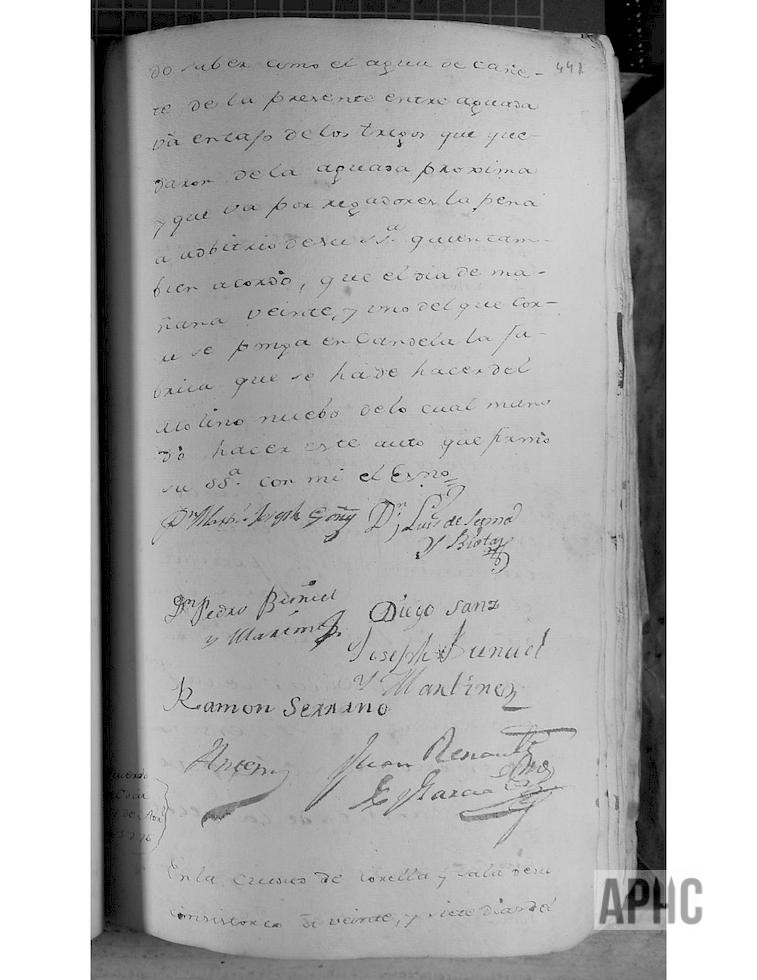 441
do saber como el agua de cañe-
te de la presente entre aguada
va en caso de los trigos que que-
daron de la aguada proxima
y que va por regadores la pena
a adbitrio de su SS.ª quien tam-
bien acordò, que el dia de ma-
ñana veinte, y uno del que cor-
re se ponga en Candela la fa-
brica que se ha de hacer del
Molino nuebo de lo cual man-
dò hacer este auto que firmò
su SS.ª con mi el Esno
Dn Joseph Goñy Dn Luis de Sesma
y Biota
Dn Pedro Buñuel
y Maximo
Diego Sanz
Joseph Buñuel
y Martinez
Ramon Serrano
Antemi Juan Renault
y Garcia Esno
En la Ciudad de Corella y sala de su
consistorio à veinte, y siete dias del
APHC